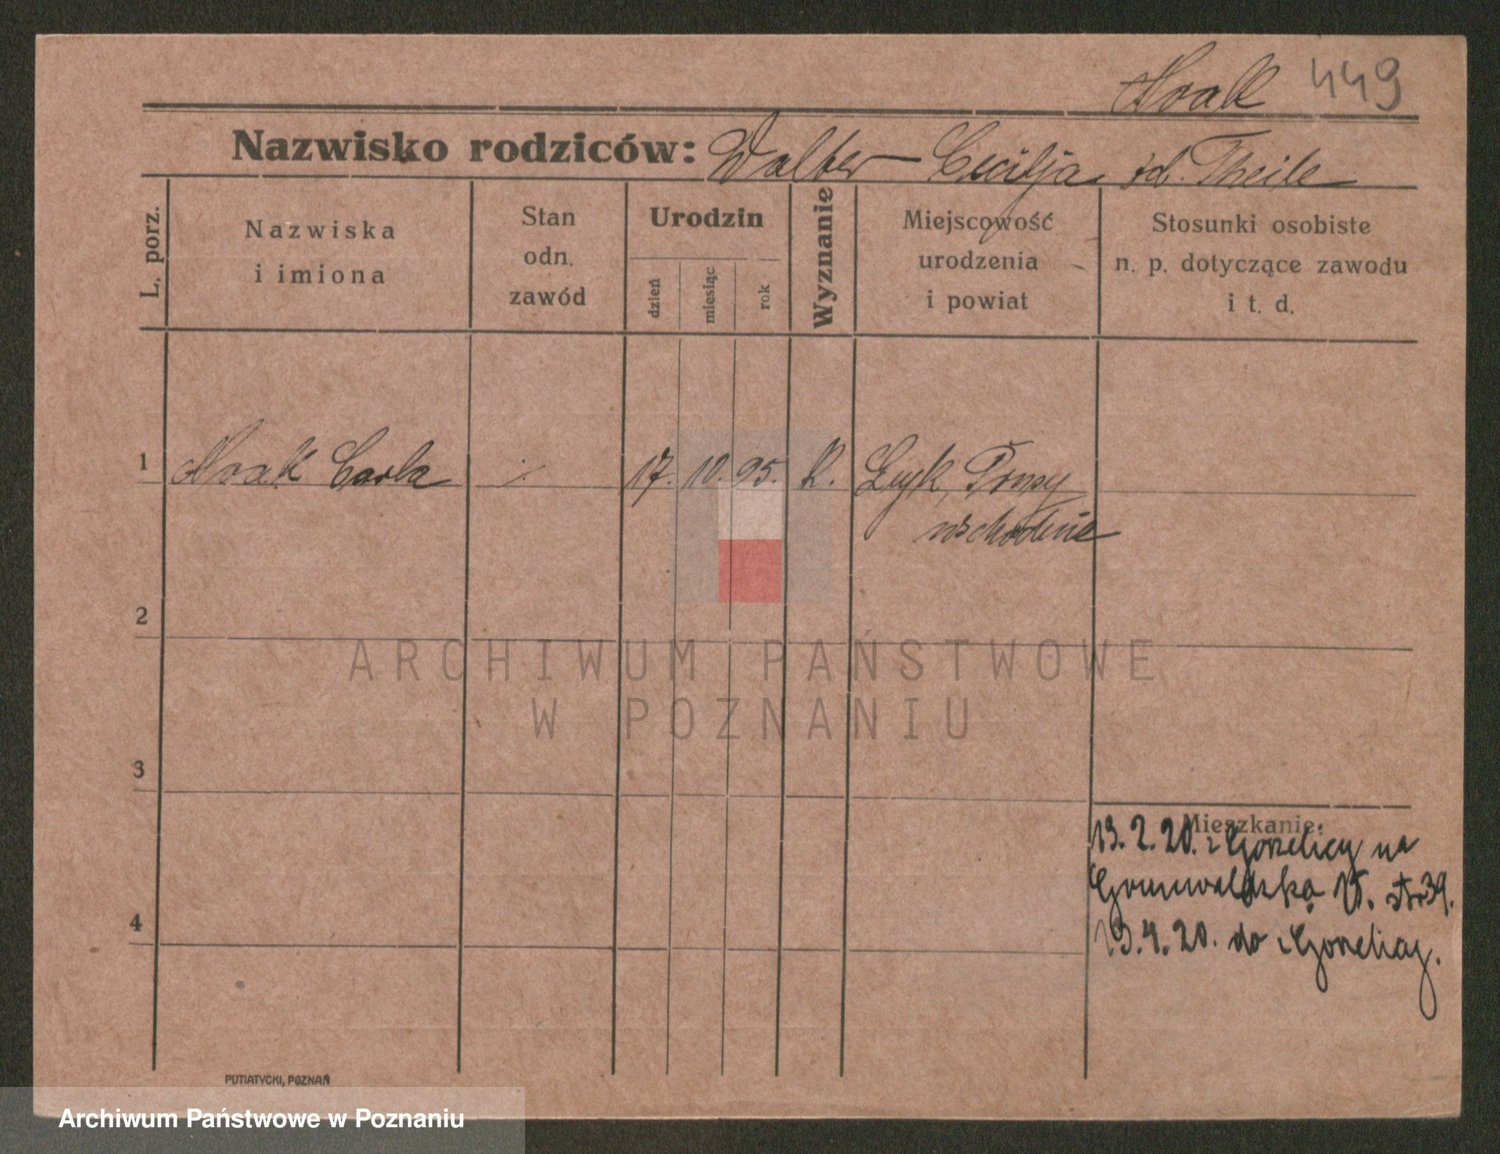 Noak 449
Nazwisko rodziców: Walter Cecilja zd. Theile
L. porz.
Nazwiska
i imiona
Stan
odn.
zawód
Urodzin
dzień
miesiąc
rok
Wyznanie
Miejscowość
urodzenia
i powiat
Stosunki osobiste
n. p. dotyczące zawodu
i t. d.
1 Noak Carla 17. 10. 95. K. Łyk, Prusy
wschodnie
2
3
4
Mieszkanie:
13. 2. 20. z Gorzelicy na
Grunwaldzką 39.
13. 4. 20. do Gorzelicy.
PUTIATYCKI, POZNAŃ
ARCHIWUM PAŃSTWOWE
W POZNANIU
Archiwum Państwowe w Poznaniu